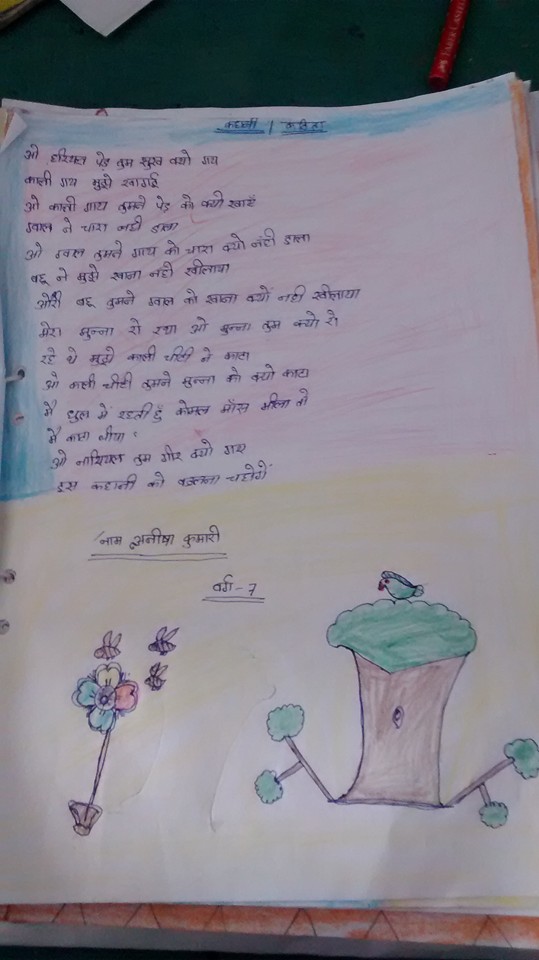 कहानी / कविता
ओ हरियल पेड़ तुम सुख क्यो गय
काली गाय मुझे खागई
ओ काली गाय तुमने पेड़ को क्यो खाएँ
ग्वाल ने चारा नही डाला
ओ ग्वाल तुमने गाय को चारा क्यो नही डाला
बहू ने मुझे खाना नही खीलाया
ओरी बहू तुमने ग्वाल को खाना क्यों नही खीलाया
मेरा मुन्ना रो रया ओ मुन्ना तुम क्यो रो
रहे थे मुझे काली चीटी ने काटा
ओ काली चीटी तुमने मुन्ना को क्यो काटा
मै धुल में रहती हुँ कोमल माँस मीला तो
मै काटा लीया
ओ नारियल तुम गीर क्यो गय
इस कहानी को बदलना चाहोगें
नाम अनीषा कुमारी
वर्ग - 7
FABER-CASTELL